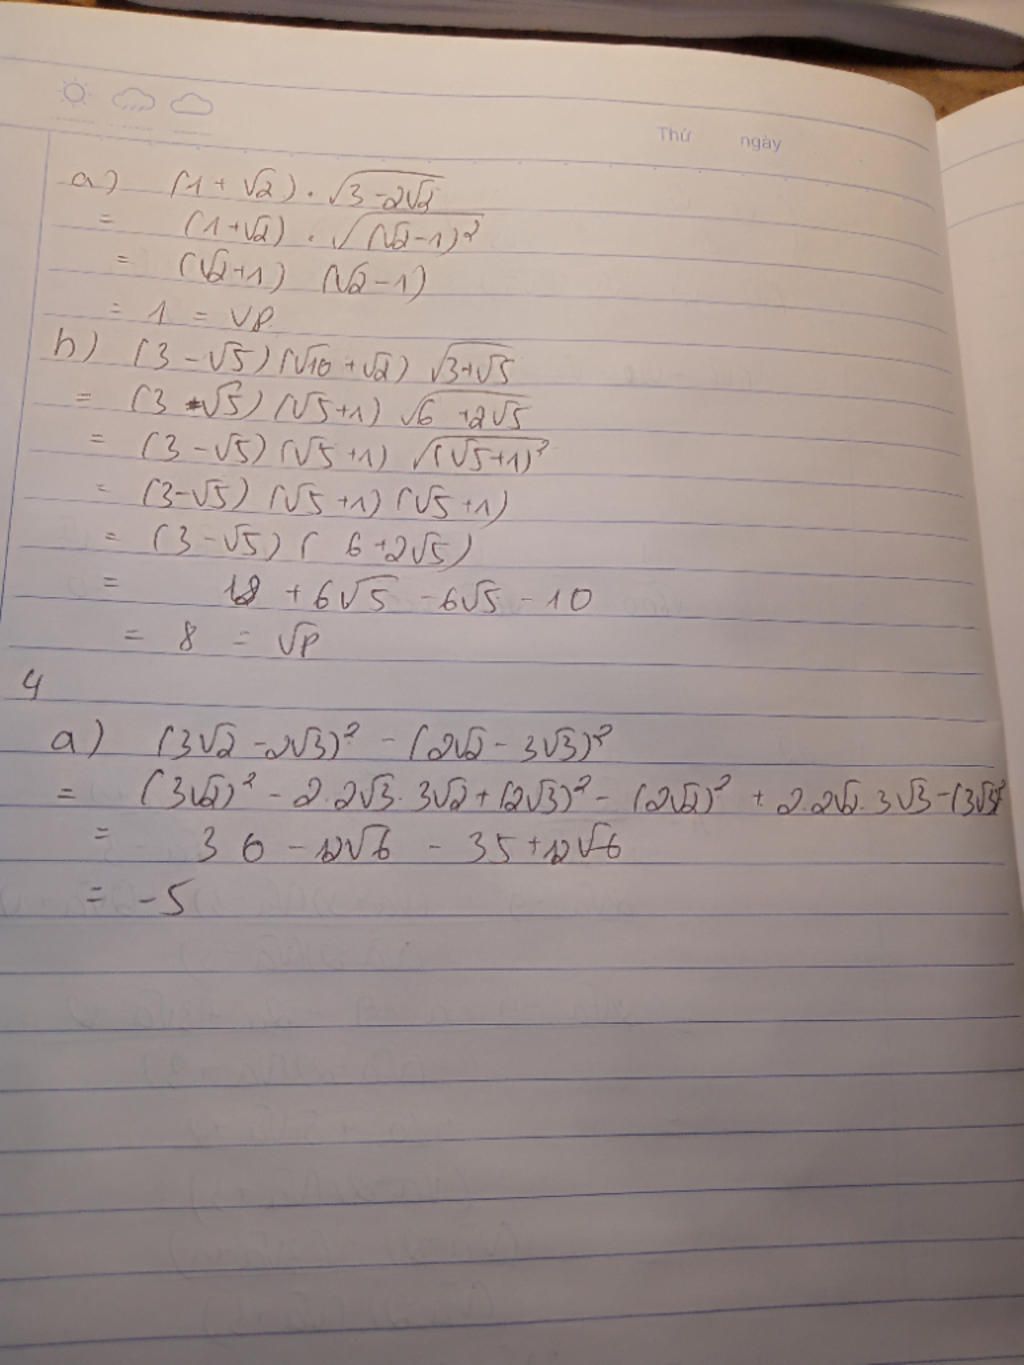 Thứ ngày
a) (1 + √2) . √(3 - 2√2)
= (1 + √2) . √((√2 - 1)²)
= (√2 + 1) (√2 - 1)
= 1 = VP
b) (3 - √5) (√10 + √2) √(3 + √5)
= (3 - √5) (√5 + 1) √(6 + 2√5)
= (3 - √5) (√5 + 1) √((√5 + 1)²)
= (3 - √5) (√5 + 1) (√5 + 1)
= (3 - √5) (6 + 2√5)
= 18 + 6√5 - 6√5 - 10
= 8 = VP
4
a) (3√2 - 2√3)² - (2√2 - 3√3)²
= (3√2)² - 2.2√3.3√2 + (2√3)² - (2√2)² + 2.2√2.3√3 - (3√3)²
= 30 - 12√6 - 35 + 12√6
= -5